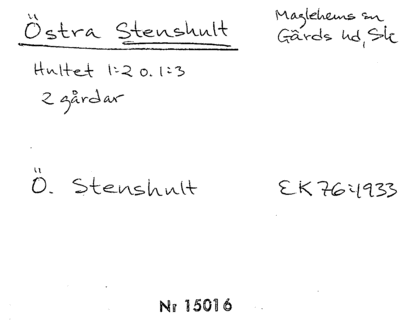 Östra Stenshult
Maglehems sn
Gärds hd, Sk
Hultet 1:2 o. 1:3
2 gårdar
Ö. Stenshult
EK 76:1933
Nr 15016